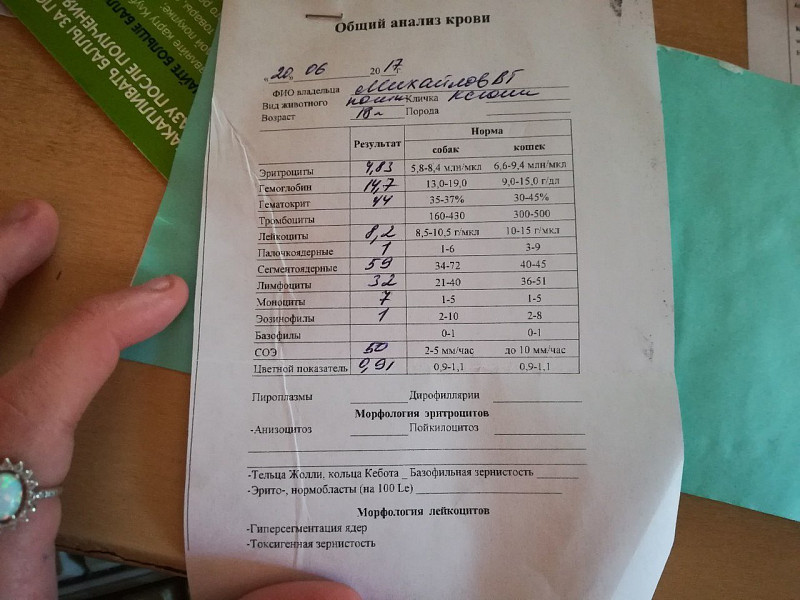 АКАПЛИВАТЬ БАЛЛЫ ЗА ПО
АЗУ ПОСЛЕ ПОЛУЧЕНИЯ
АЙТЕ БОЛЬШЕ БАЛЛ
Общий анализ крови
« 20 » 06 20 17 г.
ФИО владельца Михайлов ВТ
Вид животного Кличка
Возраст Порода
Результат Норма
собак кошек
Эритроциты 4,83 5,8-8,4 млн/мкл 6,6-9,4 млн/мкл
Гемоглобин 14,7 13,0-19,0 9,0-15,0 г/дл
Гематокрит 44 35-37% 30-45%
Тромбоциты 160-430 300-500
Лейкоциты 8,2 8,5-10,5 г/мкл 10-15 г/мкл
Палочкоядерные 1 1-6 3-9
Сегментоядерные 59 34-72 40-45
Лимфоциты 32 21-40 36-51
Моноциты 7 1-5 1-5
Эозинофилы 1 2-10 2-8
Базофилы 0-1 0-1
СОЭ 50 2-5 мм/час до 10 мм/час
Цветной показатель 0,91 0,9-1,1 0,9-1,1
Пироплазмы Дирофиллярии
Морфология эритроцитов
-Анизоцитоз Пойкилоцитоз
-Тельца Жолли, кольца Кебота _ Базофильная зернистость
-Эрито-, нормобласты (на 100 Le)
Морфология лейкоцитов
-Гиперсегментация ядер
-Токсигенная зернистость